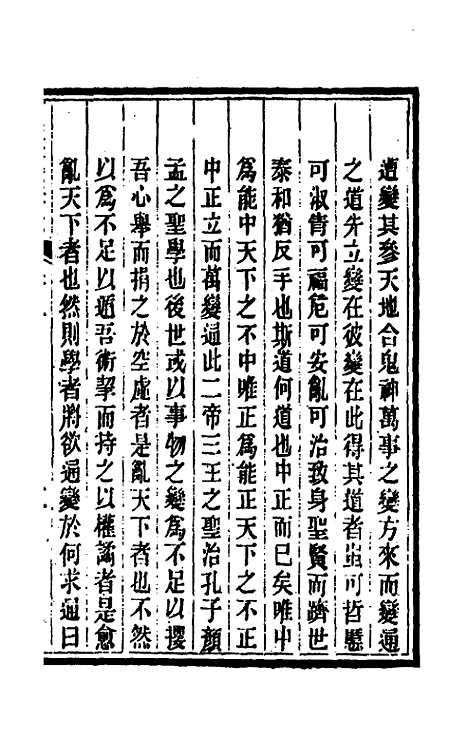 遭變其參天地合鬼神萬事之變方來而變通
之道先立變在彼變在此得其道者蚩可哲慝
可淑眚可福危可安亂可治致身聖賢而躋世
泰和猶反手也斯道何道也中正而已矣唯中
爲能中天下之不中唯正爲能正天下之不正
中正立而萬變通此二帝三王之聖治孔子顔
孟之聖學也後世或以事物之變爲不足以攖
吾心舉而捐之於空虛者是亂天下者也不然
以爲不足以遁吾術挈而持之以權譎者是愈
亂天下者也然則學者將欲通變於何求通曰